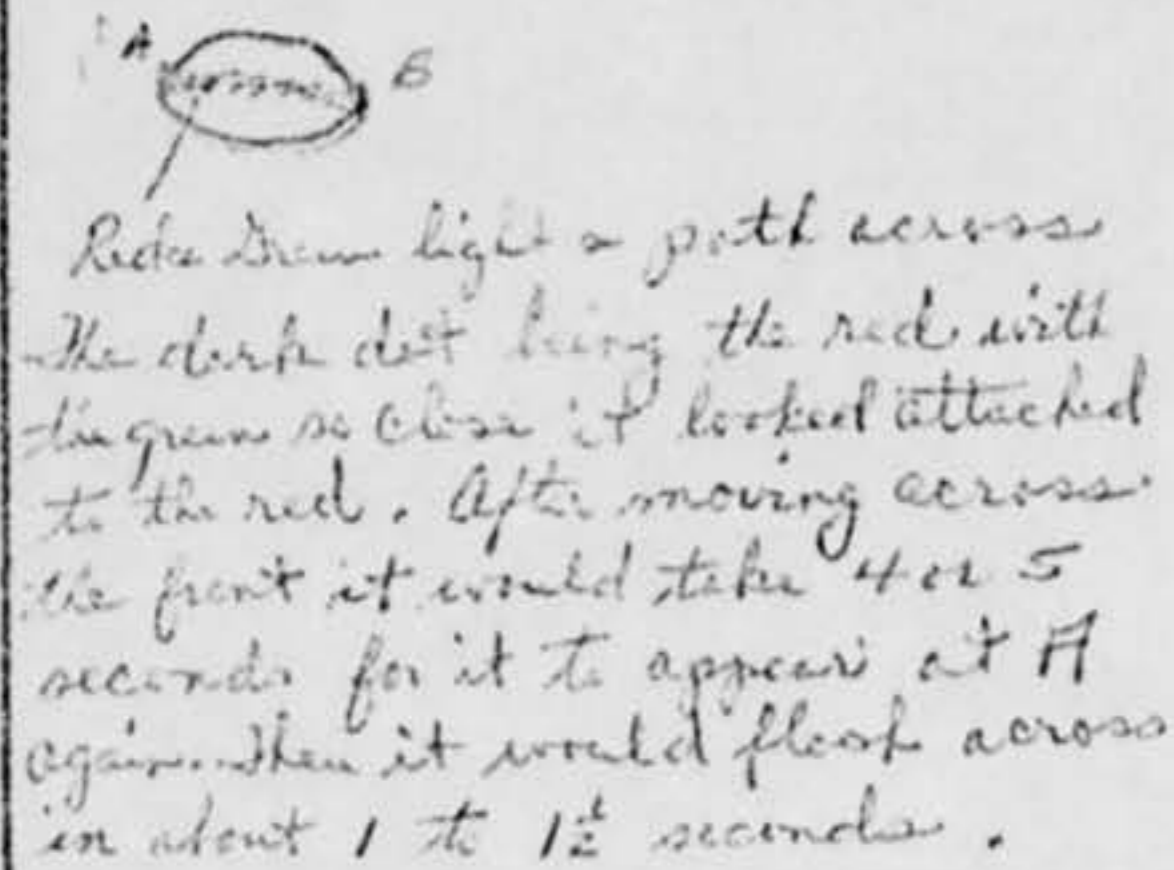 A B
Red & Green light & path across
The dark dot being the red with
the green so close it looked attached
to the red. After moving across
the front it would take 4 or 5
seconds for it to appear at A
again. Then it would flash across
in about 1 to 1½ seconds.